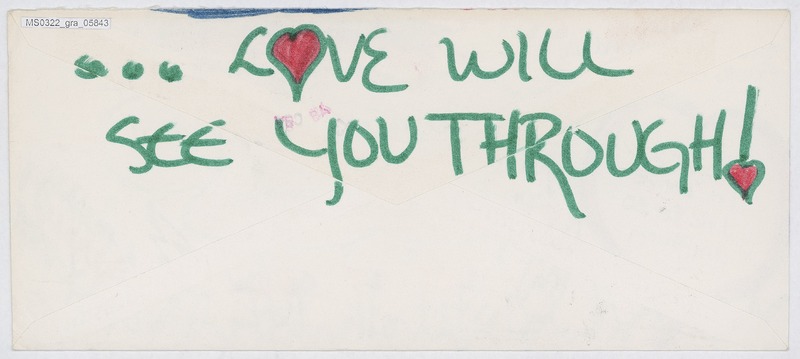 MS0322_gra_05843
... LOVE WILL
SEE YOU THROUGH!